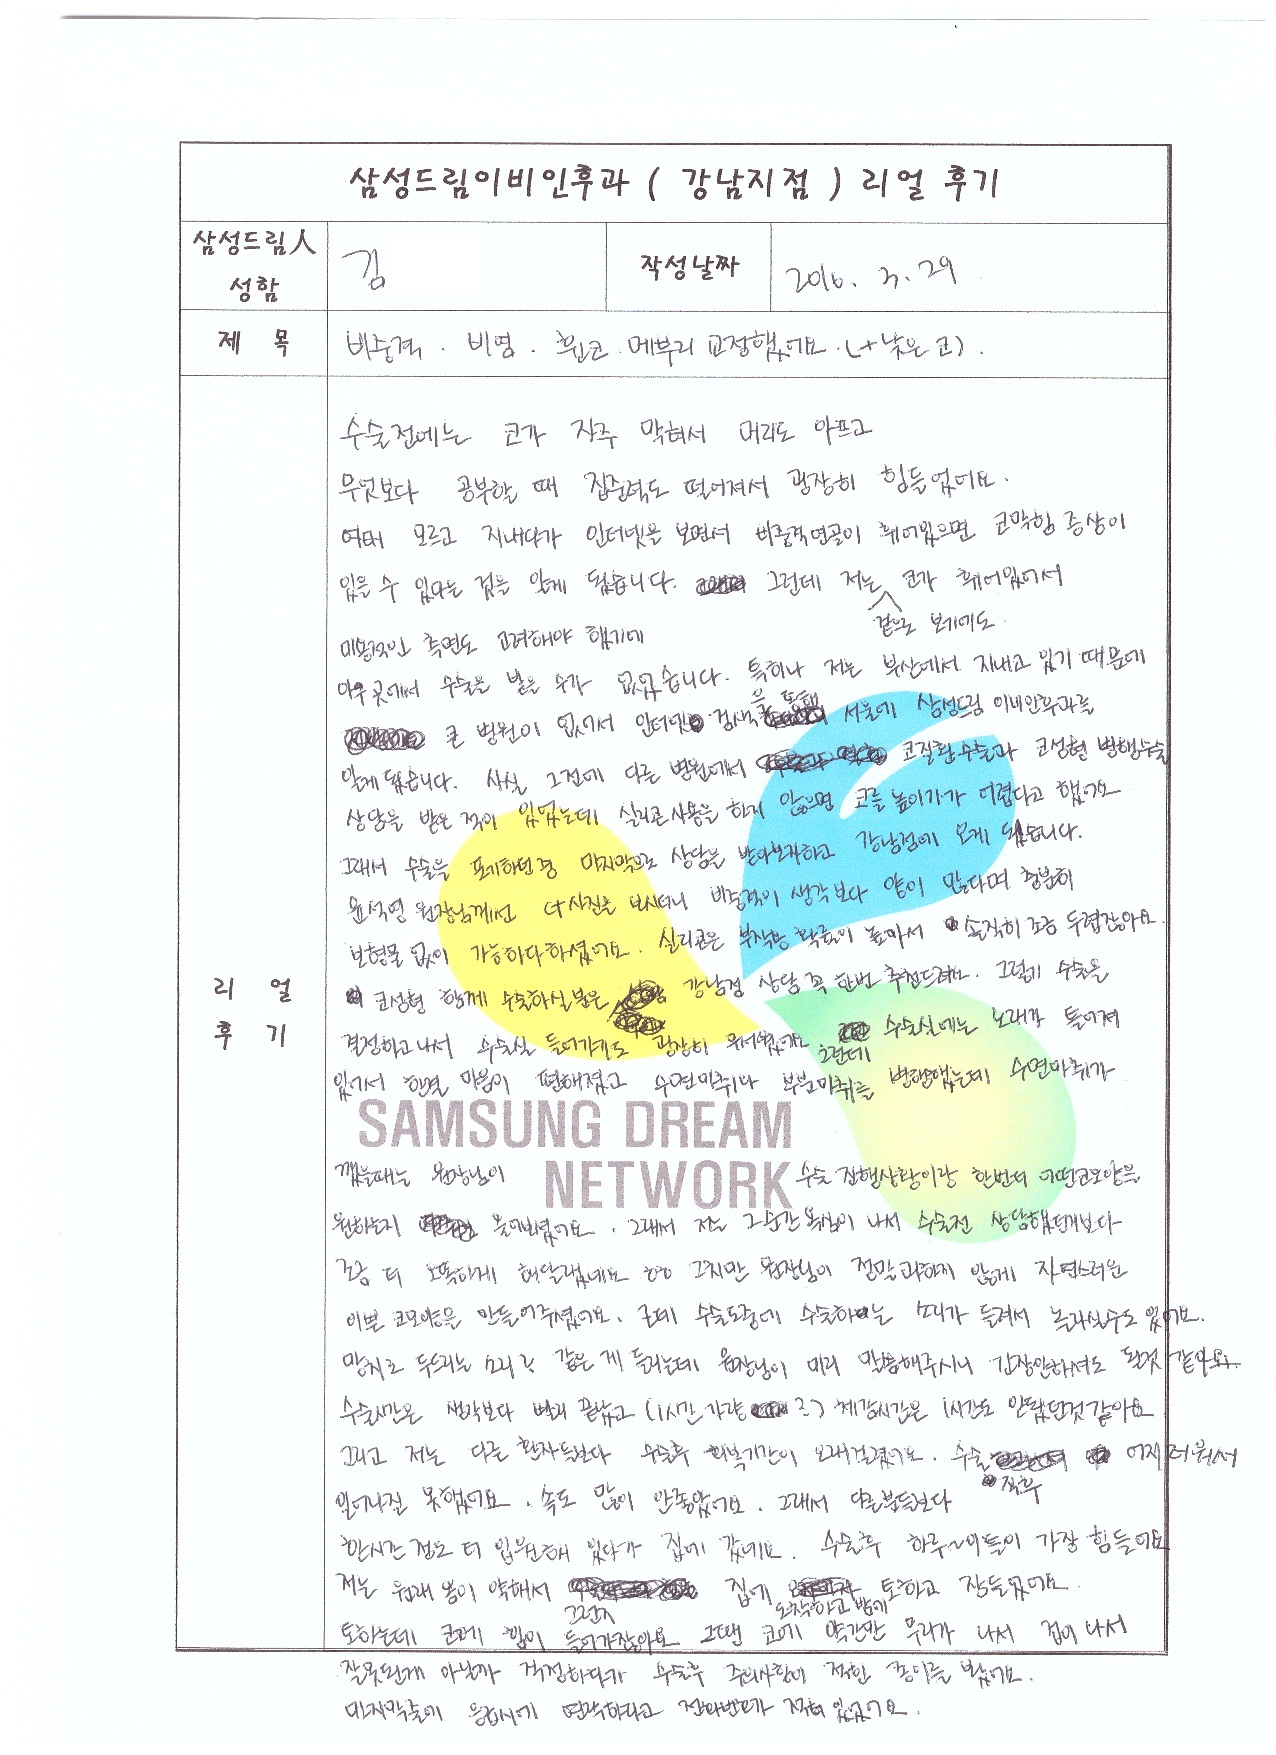 삼성드림이비인후과 ( 강남지점 ) 리얼 후기
삼성드림人 성함
김
작성날짜
2016. 3. 29
제 목
비중격 . 비염 . 휜코 메부리 교정했어요. (+낮은 코).
리 얼 후 기
수술전에는 코가 자주 막혀서 머리도 아프고
무엇보다 공부할 때 집중력도 떨어져서 굉장히 힘들었어요.
여태 모르고 지내다가 인터넷을 보면서 비중격연골이 휘어있으면 코막힘 증상이
있을 수 있다는 것을 알게 됐습니다. 그런데 저는 겉으로 보기에도 코가 휘어있어서
미용적인 측면도 고려해야 했기에
아무곳에서 수술을 받을 수가 없었습니다. 특히나 저는 부산에서 지내고 있기 때문에
큰 병원이 없어서 인터넷 검색을 통해 서울에 삼성드림 이비인후과를
알게 됐습니다. 사실 그전에 다른 병원에서 코질환수술과 코성형 병행수술
상담을 받은 적이 있었는데 실리콘사용을 하지 않으면 코를 높이기가 어렵다고 했어요
그래서 수술을 포기하던중 마지막으로 상담을 받아보자하고 강남점에 오게 됐습니다.
윤석영 원장님께선 CT사진을 보시더니 비중격이 생각보다 양이 많다며 충분히
보형물 없이 가능하다하셨어요. 실리콘은 부작용 확률이 높아서 솔직히 조금 두렵잖아요.
코성형 함께 수술하실분은 강남점 상담 꼭 한번 추천드려요. 그렇게 수술을
결정하고나서 수술실 들어가기도 굉장히 무서웠어요 그런데 수술실에는 노래가 틀어져
있어서 한결 마음이 편해졌고 수면마취나 부분마취를 병행했는데 수면마취가
SAMSUNG DREAM
NETWORK
깼을때는 원장님이 수술 진행상황이랑 한번더 어떤코모양을
원하는지 물어보셨어요. 그래서 저는 그순간 욕심이 나서 수술전 상담했던거보다
조금 더 오똑하게 해달랬네요 ㅎㅎ 그치만 원장님이 정말 과하지 않게 자연스러운
이쁜 코모양을 만들어주셨어요. 근데 수술도중에 수술하는 소리가 들려서 놀라실수도 있어요.
망치로 두드리는 소리 같은 게 들리는데 원장님이 미리 말씀해주시니 긴장안하셔도 될것 같아요.
수술시간은 생각보다 빨리 끝났고 (1시간 가량 ?) 체감시간은 1시간도 안됐던것같아요
그리고 저는 다른 환자들보다 수술후 회복기간이 오래걸렸어요. 수술 직후 어지러워서
일어나질 못했어요. 속도 많이 안좋았어요. 그래서 다른분들보다
한시간 정도 더 입원해 있다가 집에 갔네요. 수술후 하루~이틀이 가장 힘들어요
저는 원래 몸이 약해서 그런지 집에 도착하고 밤에 토하고 잠들었어요.
토하는데 코에 힘이 들어가잖아요 그땐 코에 약간만 무리가 나서 겁이 나서
잘못된게 아닐까 걱정하다가 수술후 주의사항이 적힌 종이를 봤어요.
마지막줄에 응급시에 연락하라고 전화번호가 적혀 있었어요.